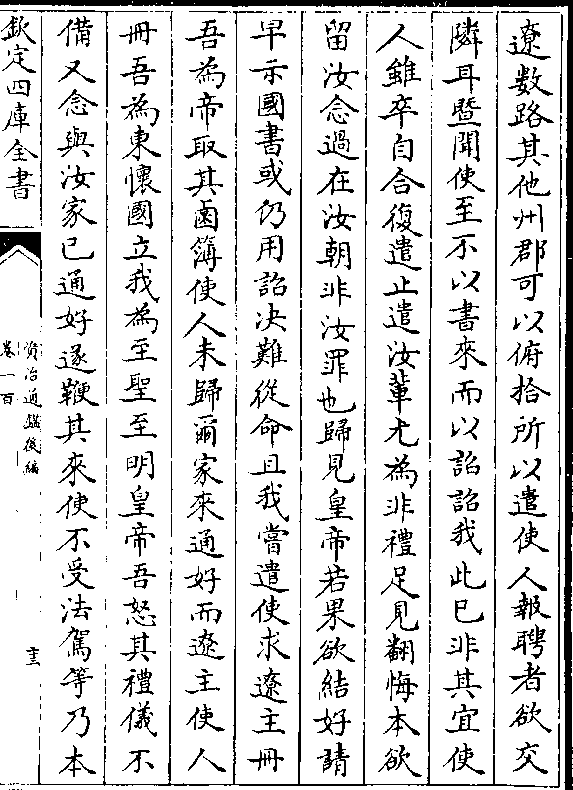 遼數路其他州郡可以俯拾所以遣使人報聘者欲交
隣耳暨聞使至不以書來而以詔詔我此已非其宜使
人雖卒自合復遣止遣汝輩尤為非禮足見翻悔本欲
留汝念過在汝朝非汝罪也歸見皇帝若果欲結好請
早示國書或仍用詔决難從命且我嘗遣使求遼主冊
吾為帝取其鹵簿使人未歸爾家來通好而遼主使人
冊吾為東懷國立我為至聖至明皇帝吾怒其禮儀不
備又念與汝家已通好遂鞭其來使不受法駕等乃本
欽定四庫全書
資治通鑑後編
卷一百
十三